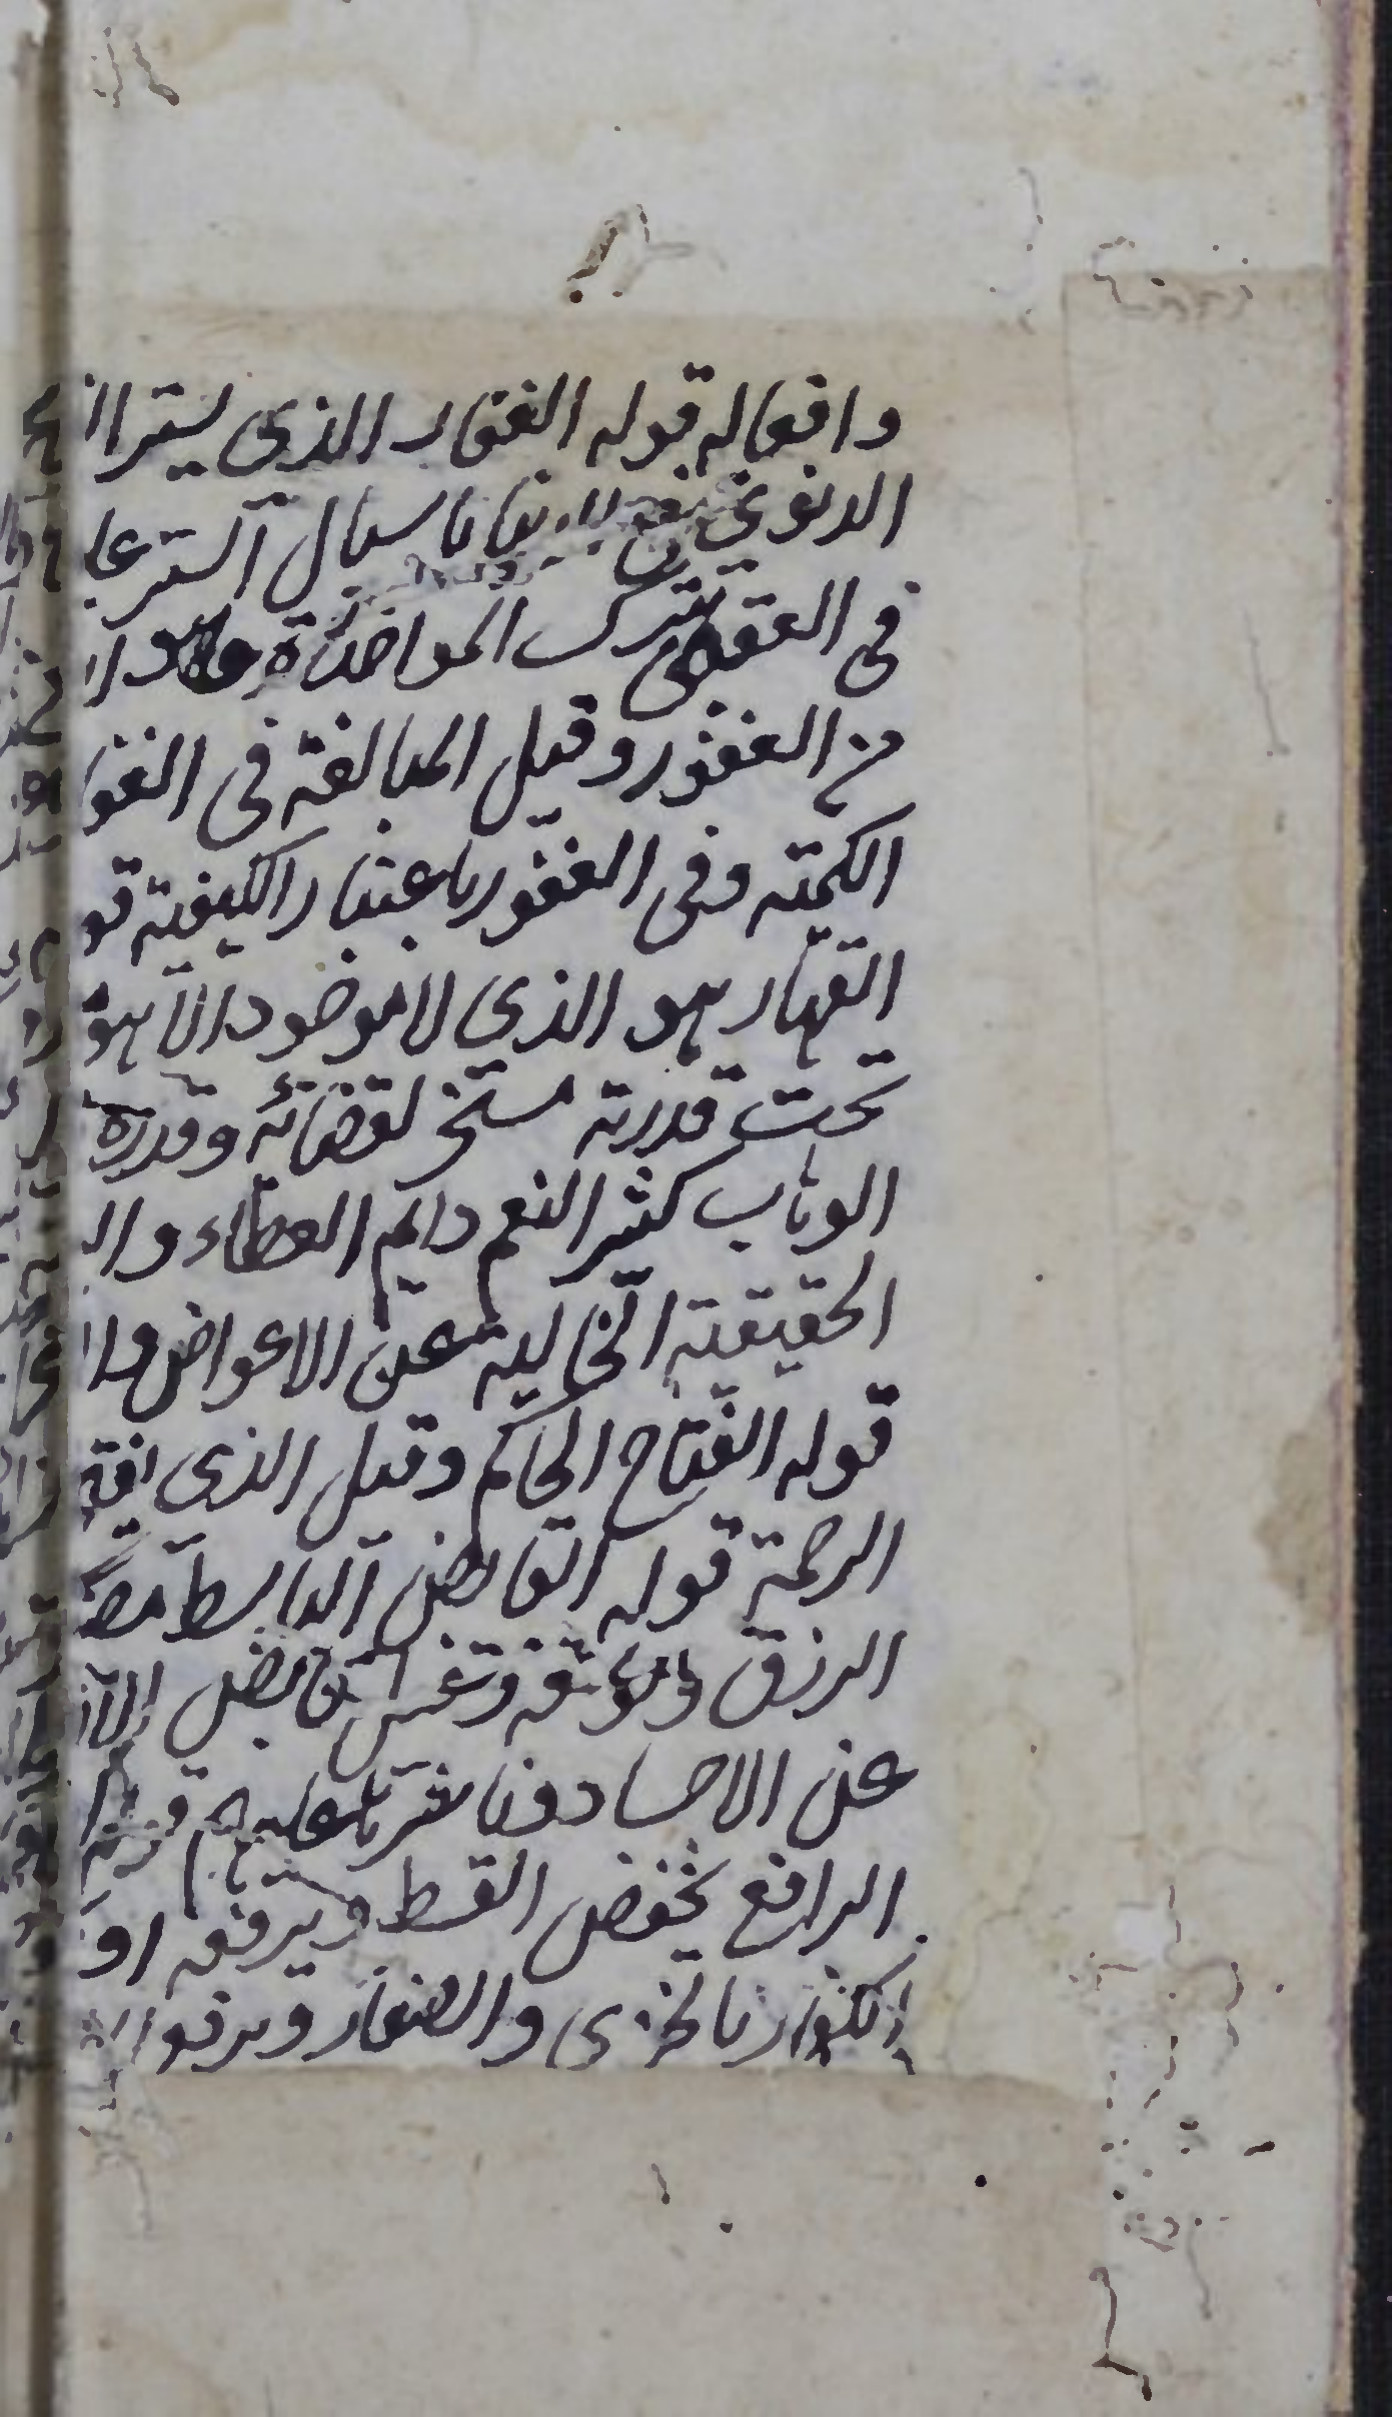 وافعاله قوله الغفار الذي يستر
الدنوب باسبال الستر
في العقبى بترك المواخذة وهو
من الغفور وقيل المبالغة في الغفا
الكمية وفي الغفور باعتبار الكيفية قو
القهار هو الذي لا موجود الا هو
تحت قدرته مسخر لقضائه وقدرة
الوهاب كثير النعم دايم العطاء وال
الحقيقية الخالية عن الاعواض وا
قوله الفتاح الحاكم وقيل الذي يفتح
الرحمة قوله القابض الباسط
الرزق ويوسعه وقيل قابض
عن الاجساد وناشرها عليهم قوله
الرافع يخفض القسط ويرفعه او
الكفار بالخزي والصغار ويرفع